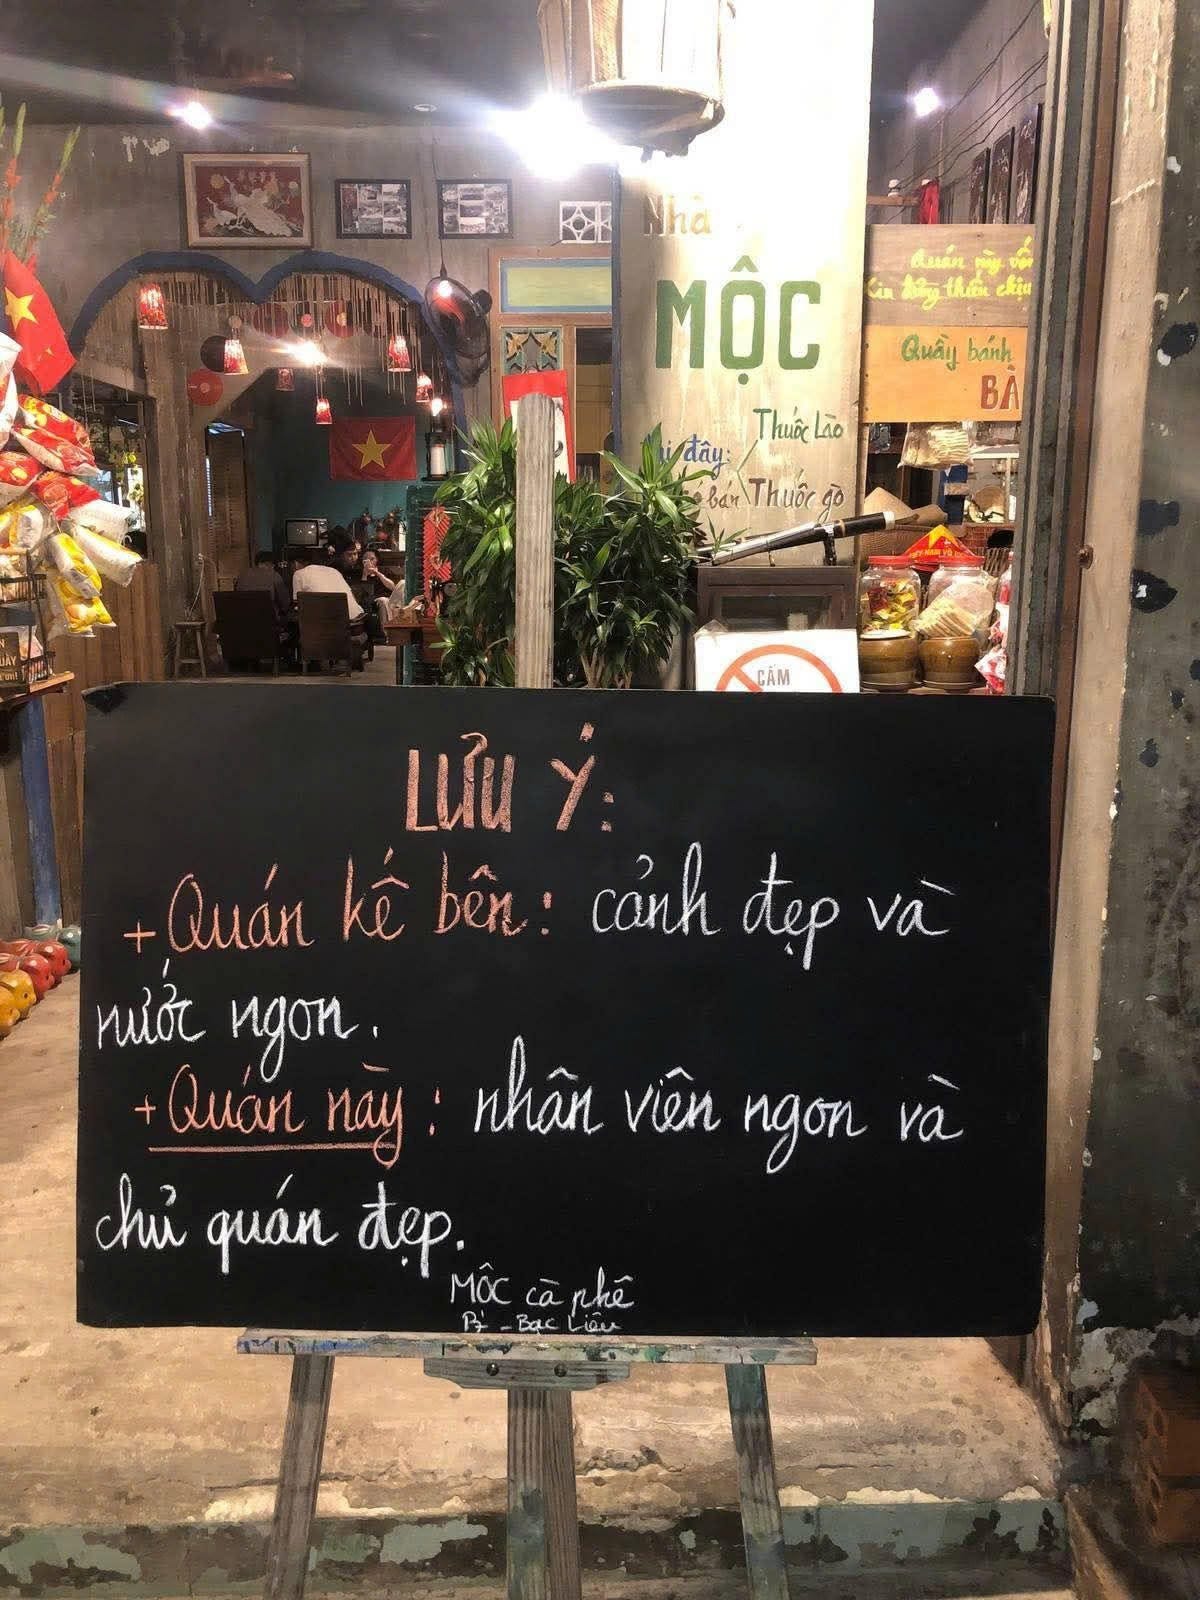 Nhà
MỘC
Thuốc Lào
đây:
bán Thuốc gò
Quán này vẫn
Xin đừng thiếu chịu
Quầy bánh
BÀ
CẤM
LƯU Ý:
+ Quán kế bên: cảnh đẹp và
nước ngon.
+ Quán này: nhân viên ngon và
chủ quán đẹp.
MỘC cà phê
- Bạc Liêu